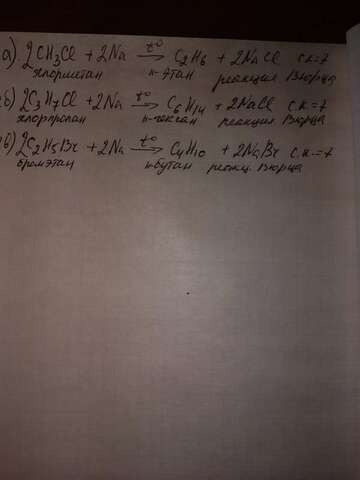 а) 2CH3Cl + 2Na t° → C2H6 + 2NaCl с.к=7
хлорметан н-этан реакция Вюрца
б) 2C3H7Cl + 2Na t° → C6H14 + 2NaCl с.к=7
хлорпропан н-гексан реакция Вюрца
в) 2C2H5Br + 2Na t° → C4H10 + 2NaBr с.к.=7
бромэтан н-бутан реакц. Вюрца